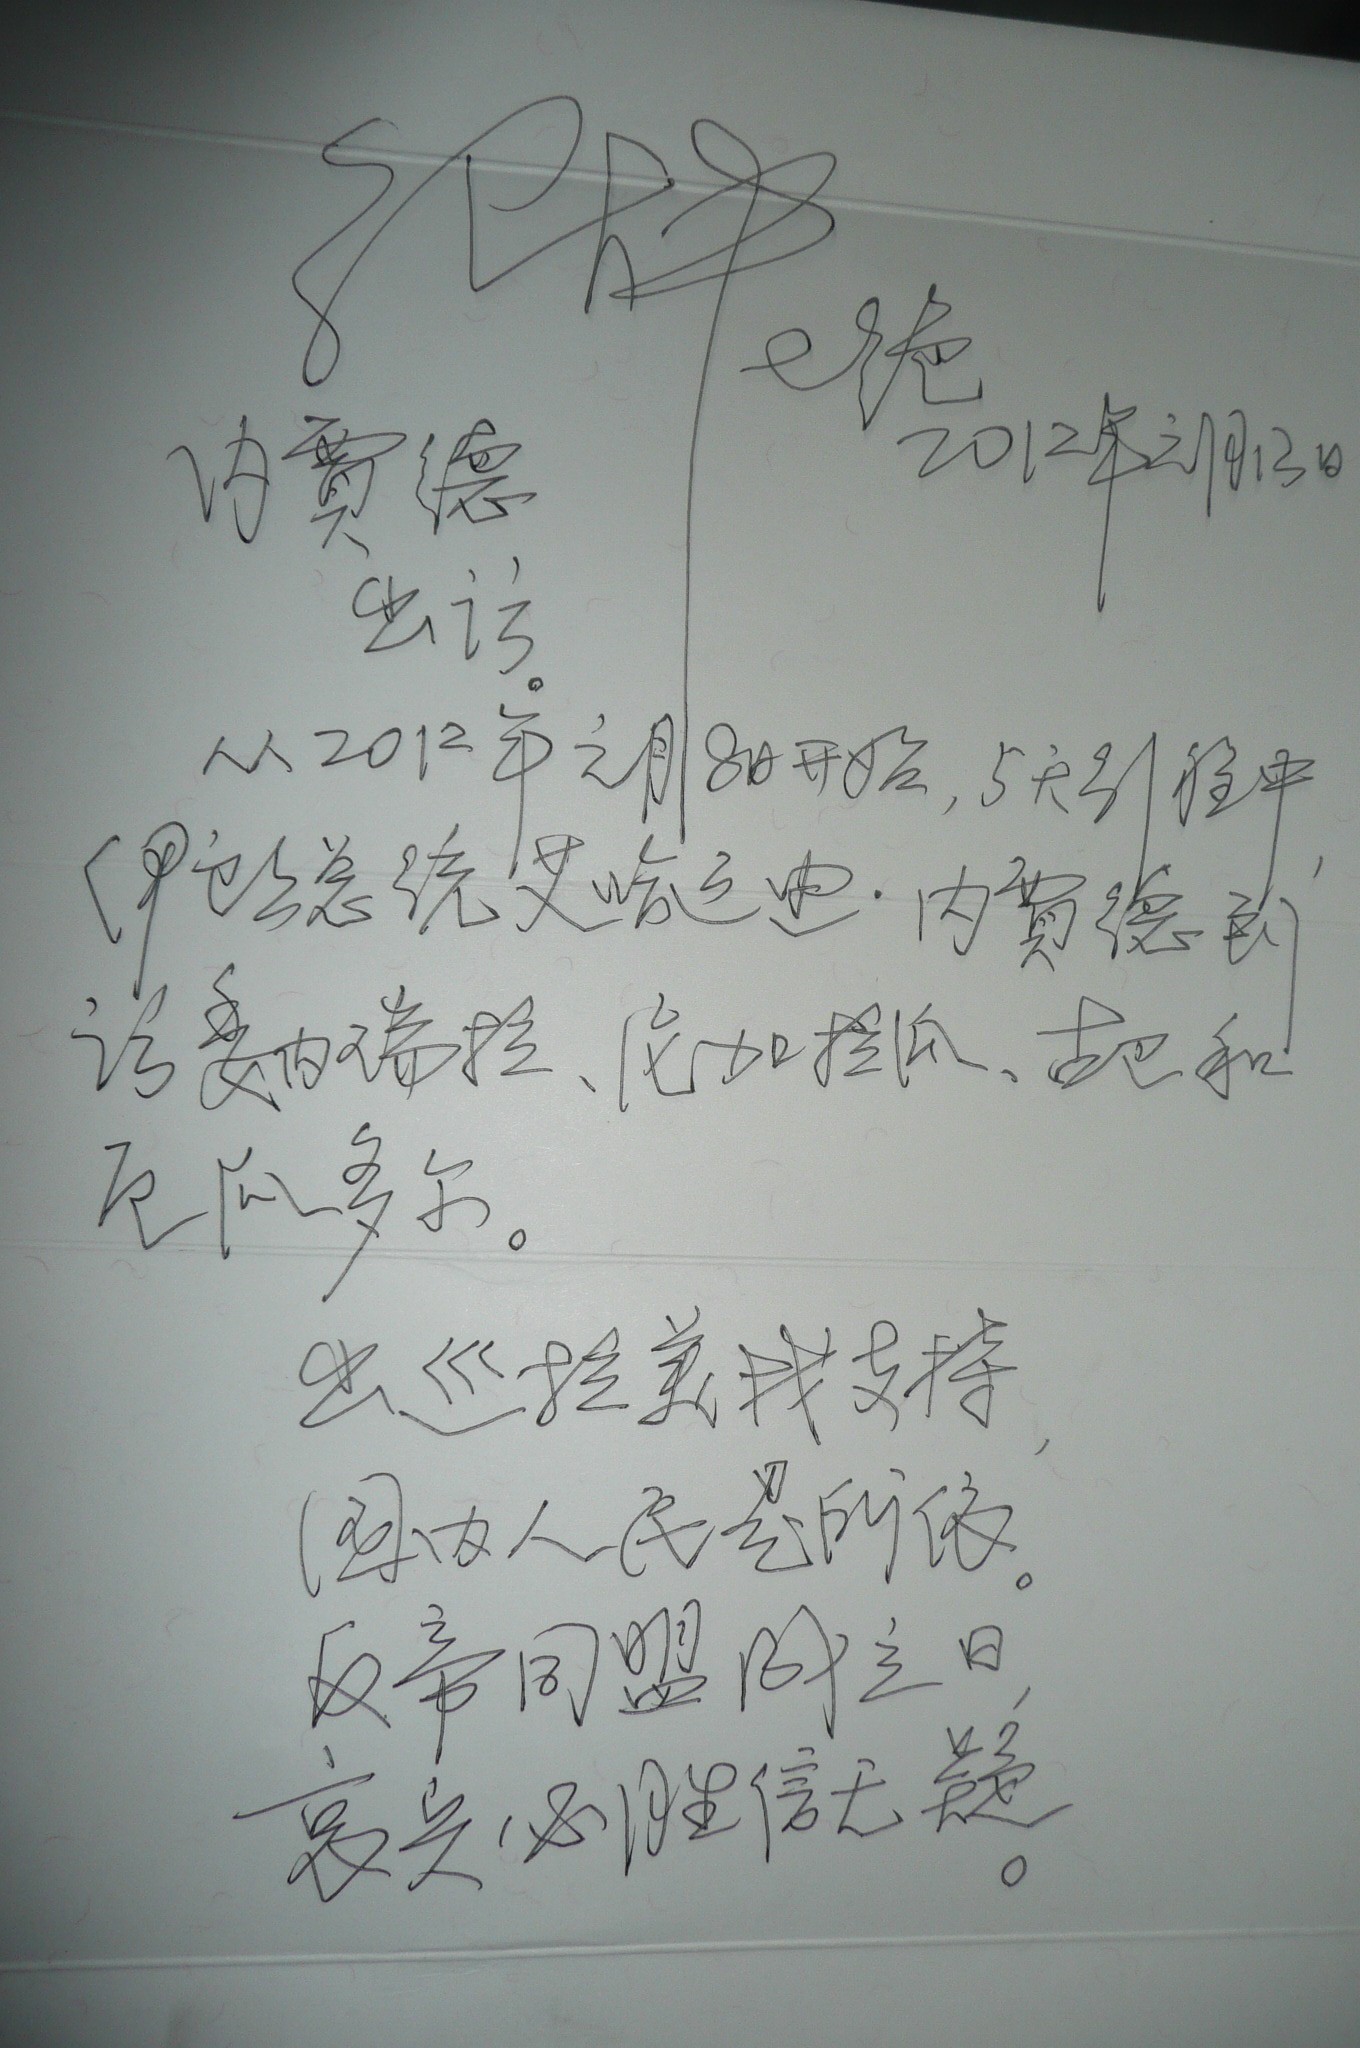 七绝
2012年元月13日
内賈德
出访。
从2012年元月8日开始，5天引程中，
伊朗总统艾哈迈迪·内賈德到
访委内瑞拉、尼加拉瓜、古巴和
厄瓜多尔。
出巡拉美找支持，
国内人民是所依。
反帝同盟成立日，
哀兵必胜信无疑。